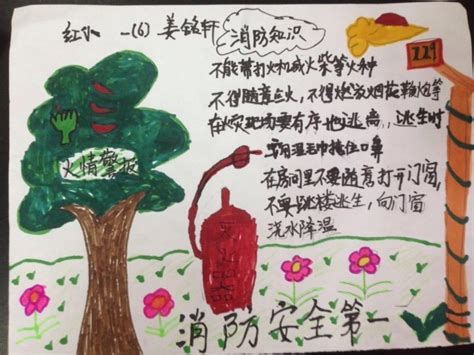 红小 一(6) 姜铭轩
消防知识
119
不能带打火机或火柴等火种
不得随意点火,不得燃放烟花鞭炮等
在火灾现场要有序地逃离,逃生时
要用湿毛巾掩住口鼻
在房间里不要随意打开门窗,
不要跳楼逃生,向门窗
浇水降温
火情警报
消防安全第一